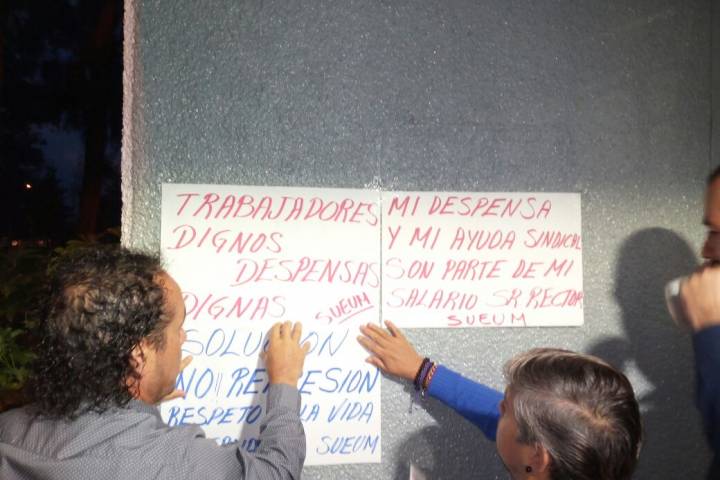 TRABAJADORES
DIGNOS
DESPENSAS
DIGNAS SUEUM
SOLUCION
NO REPRESION
RESPETO LA VIDA
SUEUM
MI DESPENSA
Y MI AYUDA SINDICAL
SON PARTE DE MI
SALARIO SR RECTOR
SUEUM